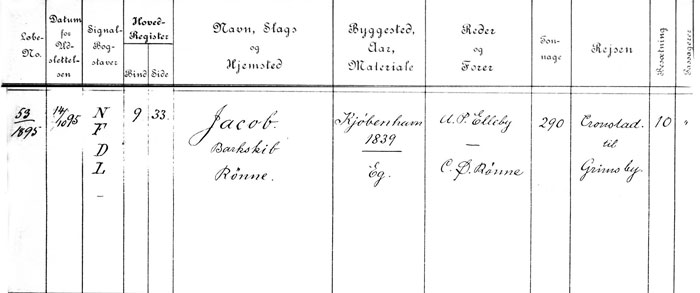 Løbe-
No.
Datum
for
Ud-
slettel-
sen
Signal-
Bog-
staver
Hoved-
Register
Bind
Side
Navn, Slags
og
Hjemsted
Byggested,
Aar,
Materiale
Reder
og
Fører
Ton-
nage
Rejsen
Besætning
Passagerer
53
1895
14/10 95
N
F
D
L
9
33.
Jacob.
Barkskib
Rönne.
Kjöbenhavn
1839
Eg.
A. P. Elleby
C. D. Rönne
290
Cronstad.
til
Grimsby.
10
"